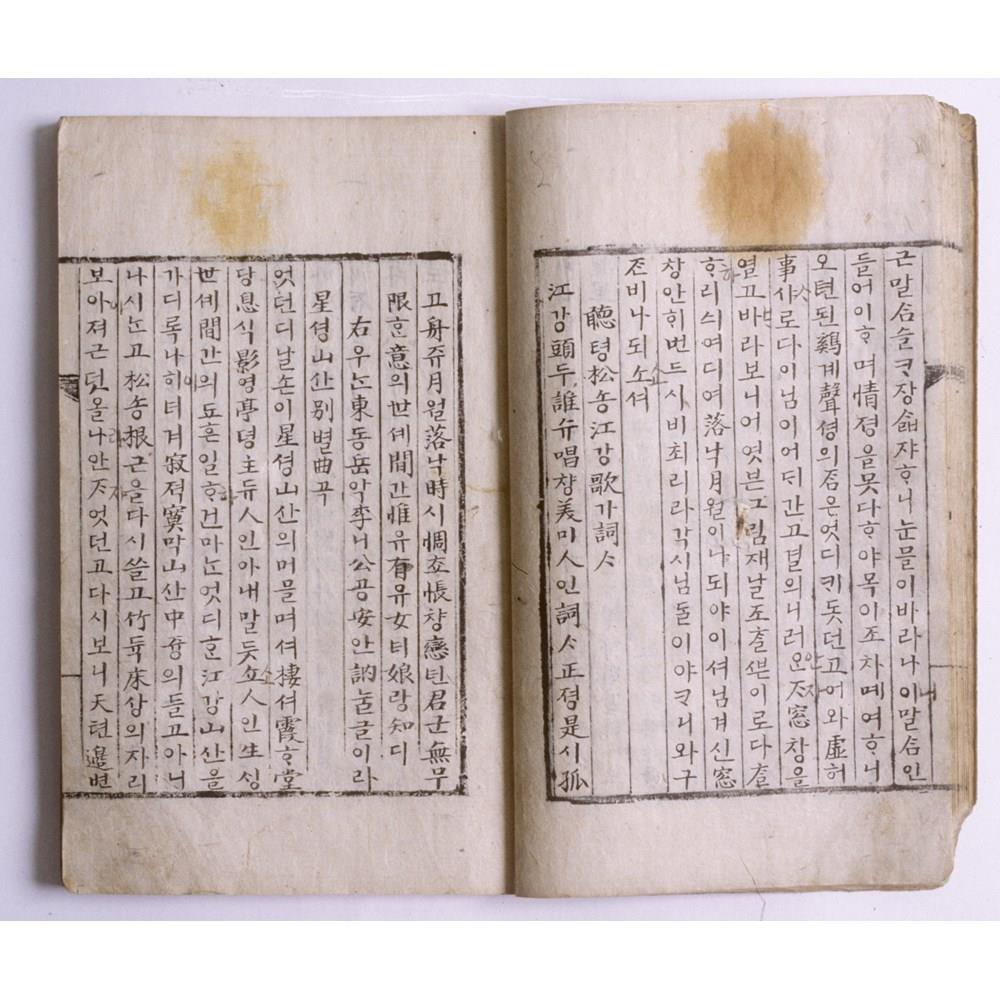 근말ᄉᆞᆷ슬ᄏᆞ장ᄉᆞᆲ쟈ᄒᆞ니눈믈이바라나니말ᄉᆞᆷ인
들어이ᄒᆞ며情졍을못다ᄒᆞ야목이조차몌여ᄒᆞ니
오뎐된鷄계聲셩의ᄌᆞᆷ은엇디ᄭᆡ돗던고어와虛허
事ᄉᆞ로다이님이어ᄃᆡ간고결의니러안자窓창을
열고바라보니어엿븐그림재날조ᄎᆞᆯᄲᅮᆫ이로다ᄎᆞᆯ
하리싀여디여落낙月월이나되야이셔님겨신窓
창안ᄒᆡ번드시비최리라각시님ᄃᆞᆯ이야ᄏᆞ니와구
ᄌᆞᆫ비나되쇼셔
聽텽松숑江강歌가詞ᄉᆞ
江강頭두誰슈唱챵美미人인詞ᄉᆞ正졍是시孤
고舟쥬月월落낙時시惆츄悵챵戀련君군無무
限ᄒᆞᆫ意의世셰間간惟유有유女녀娘랑知디
右우ᄂᆞᆫ東동岳악李니公공安안訥눌글이라
星셩山산別별曲곡
엇던디날손이星셩山산의머믈며셔棲셔霞하堂
당息식影영亭뎡主쥬人인아내말듯소人인生ᄉᆡᆼ
世셰間간의됴흔일하건마ᄂᆞᆫ엇디ᄒᆞᆫ江강山산을
가디록나이녀겨寂젹寞막山산中듕의들고아니
나시ᄂᆞᆫ고松숑根근을다시쓸고竹듁床상의자리
보아져근덧올라안자엇던고다시보니天텬邊변